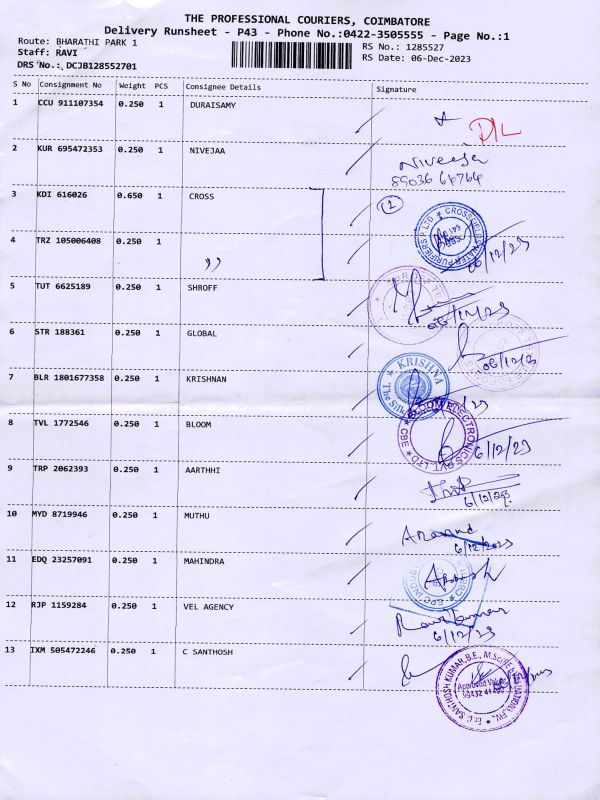 THE PROFESSIONAL COURIERS, COIMBATORE
Delivery Runsheet - P43 - Phone No.:0422-3505555 - Page No.:1
Route: BHARATHI PARK 1
RS No.: 1285527
Staff: RAVI
RS Date: 06-Dec-2023
DRS No.: DCJB128552701
S No Consignment No Weight PCS Consignee Details Signature
1 CCU 911107354 0.250 1 DURAISAMY
2 KUR 695472353 0.250 1 NIVEJAA
Niveejaa
89036 64764
3 KDI 616026 0.650 1 CROSS
1
4 TRZ 105006408 0.250 1
,,
06/12/23
5 TUT 6625189 0.250 1 SHROFF
06/12/23
6 STR 188361 0.250 1 GLOBAL
06/12/23
7 BLR 1801677358 0.250 1 KRISHNAN
KRISHNA
8 TVL 1772546 0.250 1 BLOOM
BLOOM ELECTRONICS PVT LTD * CBE *
6/12/23
9 TRP 2062393 0.250 1 AARTHHI
6/12/23
10 MYD 8719946 0.250 1 MUTHU
Anand
6/12/2023
11 EDQ 23257091 0.250 1 MAHINDRA
12 RJP 1159284 0.250 1 VEL AGENCY
6/12/23
13 IXM 505472246 0.250 1 C SANTHOSH
Er.C. SANTHOSH KUMAR,B.E.,
Approved Valuer